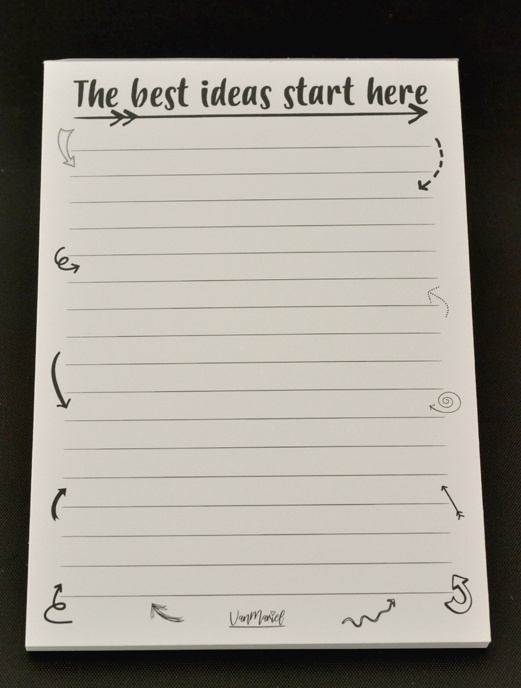 The best ideas start here
VanMariel